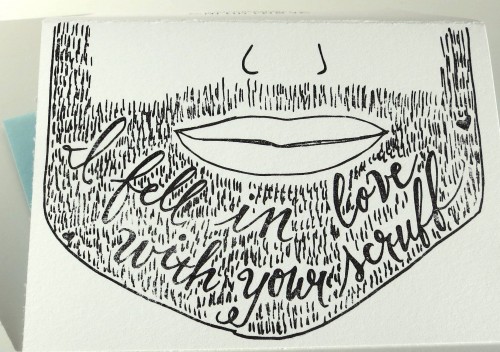 I fell in love
with your scruff